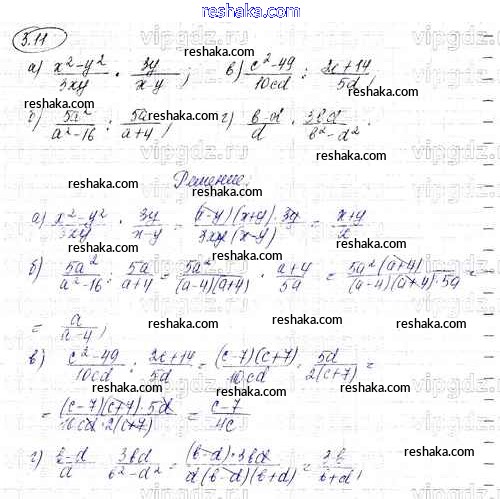 5.11
а) x²-y²/3xy · 3y/x-y; в) c²-49/10cd : 2c+14/5d;
б) 5a²/a²-16 : 5a/a+4; г) b-d/d · 3bd/b²-d².
Решение:
а) x²-y²/3xy · 3y/x-y = (x-y)(x+y)·3y/3xy(x-y) = x+y/x
б) 5a²/a²-16 : 5a/a+4 = 5a²/(a-4)(a+4) · a+4/5a = 5a²(a+4)/(a-4)(a+4)·5a =
= a/a-4;
в) c²-49/10cd : 2c+14/5d = (c-7)(c+7)/10cd · 5d/2(c+7) =
= (c-7)(c+7)·5d/10cd·2(c+7) = c-7/4c
г) b-d/d · 3bd/b²-d² = (b-d)·3bd/d(b-d)(b+d) = 3b/b+d;
reshaka.com
vipgdz.ru